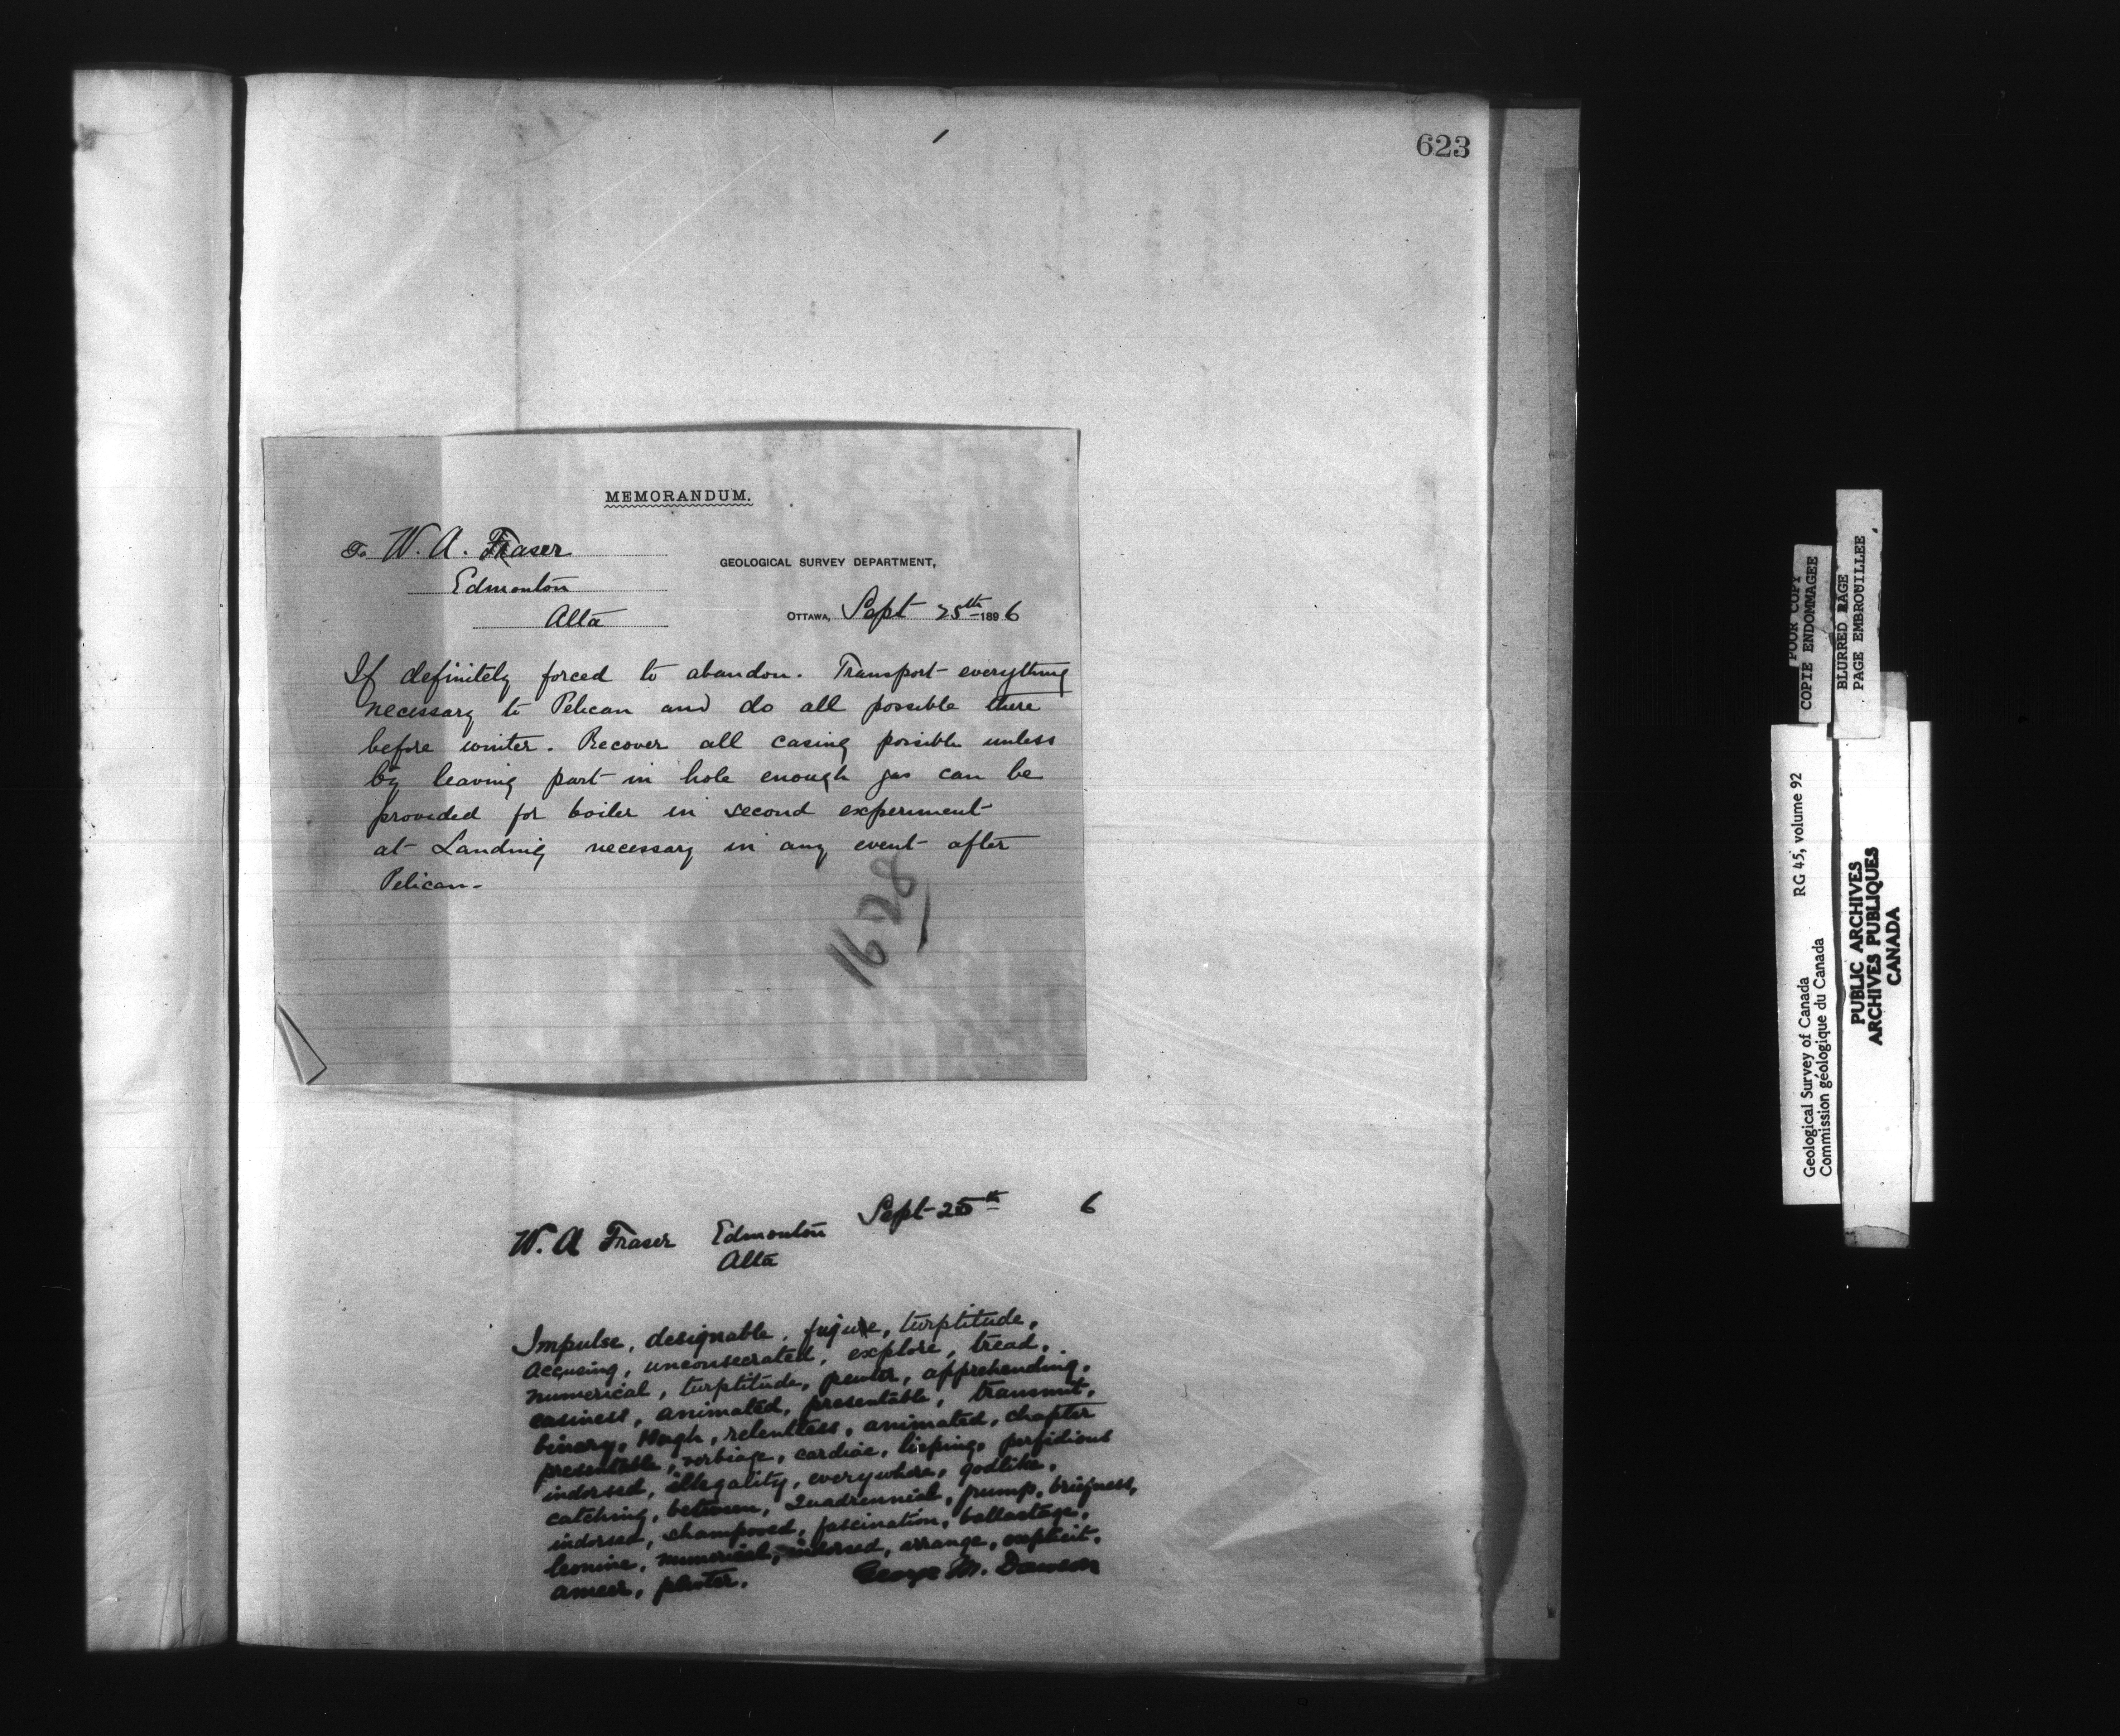 623
MEMORANDUM.
To W. A. Fraser
Edmonton
Alta
GEOLOGICAL SURVEY DEPARTMENT,
OTTAWA, Sept 25th 1896
If definitely forced to abandon. Transport everything
necessary to Pelican and do all possible there
before winter. Recover all casing possible unless
by leaving part in hole enough gas can be
provided for boiler in second experiment
at Landing necessary in any event after
Pelican.
1628
Sept 25th 6
W. A Fraser Edmonton
Alta
Impulse, designable, figure, turptitude,
accusing, unconsecrated, explore, tread,
numerical, turptitude, pewter, apprehending,
easiness, animated, presentable, transmit,
binary, Hugh, relentless, animated, chapter
presentable, verbiage, cardiac, lisping, perfidious
indorsed, illegality, everywhere, godlike,
catching, between, Quadrennial, pump, briefness,
indorsed, shampooed, fascination, ballastage,
leonine, numerical, indorsed, arrange, explicit,
ameer, pewter.
George M. Dawson
POOR COPY
COPIE ENDOMMAGEE
BLURRED PAGE
PAGE EMBROUILLEE
RG 45, volume 92
Geological Survey of Canada
Commission géologique du Canada
PUBLIC ARCHIVES
ARCHIVES PUBLIQUES
CANADA